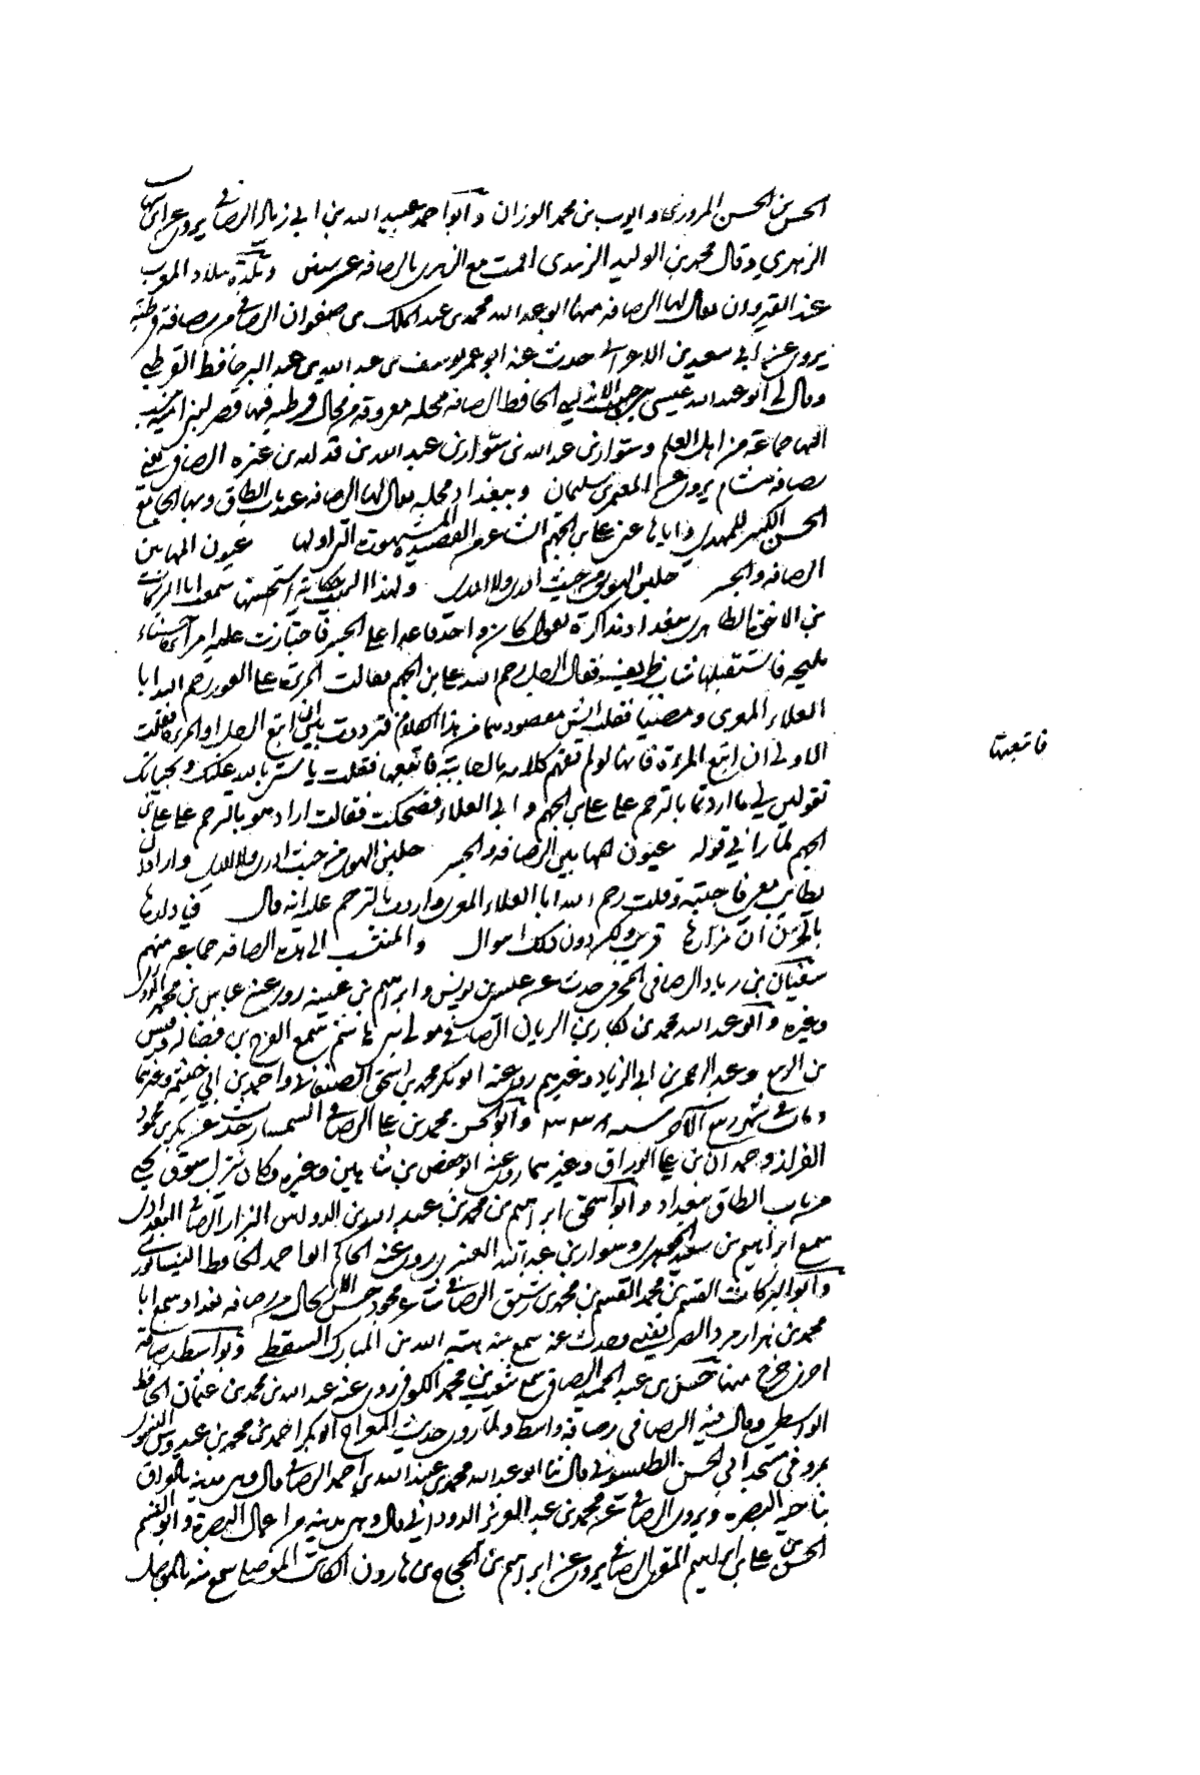 الحسن بن الحسن المروزي وايوب بن محمد الوزان وابو احمد عبيد الله بن ابي زياد الرصافي يروي عن ابن شهاب
الزهري وقال محمد بن الوليد الزبيدي اقمت مع الزهري بالرصافة عشر سنين وبلدة ببلاد المغرب
عند القيروان يقال لها الرصافة منها ابو عبد الله محمد بن عبد الملك بن صيفون الرصافي من رصافة قرطبة
يروي عن ابي سعيد بن الاعرابي حدث عنه ابو عمر يوسف بن عبد الله بن عبد البر حافظ القرطبي
وقال لي ابو عبد الله عيسى بن الاندلسي الحافظ الرصافة محلة معروفة من محال قرطبة فيها قصر لبني امية
اليها جماعة من اهل العلم وسوار بن عبد الله بن سوار بن عبد الله بن قدامة بن عنزة الرصافي يعني
رصافة هشام يروي عن المعتمر بن سليمان وببغداد محلة يقال لها الرصافة عند باب الطاق وبها الجامع
الحسن الكبير للمهدي واياها عنى علي بن الجهم الشاعر في القصيدة المشهورة التي اولها عيون المها بين
الرصافة والجسر جلبن الهوى من حيث ادري ولا ادري ولهذا البيت حكاية استحسنتها سمعت ابا البركات
بن الاخوة الطاهري ببغداد مذاكرة يقول كان واحد قاعدا على الجسر فاجتازت عليه امرأة حسناء
مليحة فاستقبلها شاب ظريف فقال الرجل رحم الله علي بن الجهم فقالت المرأة على الفور رحم الله ابا
العلاء المعري ومضيا فقلت ايش مقصودهما من هذا الكلام فترددت بين ان اتبع الرجل او المرأة فقلت
الاولى ان اتبع المرءة فانها لو لم تفهم كلامه ما اجابته فاتبعها فقلت يا ستي بالله عليك وبحياتك
تقولين لي ما اردتما بالترحم على علي بن الجهم وابي العلاء فضحكت فقالت اراد هو بالترحم على علي بن
الجهم لما رآني قوله عيون المها بين الرصافة والجسر جلبن الهوى من حيث ادري ولا ادري واراد ان
يطايبني فاجبته وقلت رحم الله ابا العلاء المعري واردت بالترحم عليه انه قال فيا دارها
بالحزن ان مزارها قريب ولكن دون ذلك اهوال والمنتسب الى هذه الرصافة جماعة منهم
سفيان بن زياد الرصافي المخرمي حدث عن عيسى بن يونس وابراهيم بن عيينة روى عنه عباس بن محمد الدوري
وغيره وابو عبد الله محمد بن بكار بن الريان الرصافي مولى بني هاشم سمع الفرج بن فضالة وقيس
بن الربيع وعبد الرحمن بن ابي الزناد وغيرهم روى عنه ابو بكر محمد بن اسحق الصنعاني واحمد بن ابي خيثمة وغيرهما
ومات في شهر ربيع الآخر سنة ٢٣٨ وابو الحسن محمد بن علي الرصافي السمسار حدث عن بكر بن محمود
القزاز وحمدان بن علي الوراق وغيرهما روى عنه ابو حفص بن شاهين وغيره وكان ينزل سوق يحيى
من باب الطاق ببغداد وابو اسحق ابراهيم بن محمد بن عبيد الله بن البزار الرصافي البغدادي
سمع ابراهيم بن سعيد الجوهري وسوار بن عبد الله العنبري روى عنه الحاكم ابو احمد الحافظ النيسابوري
وابو البركات القسم بن محمد القسم بن محمد بن رستق الرصافي شاعر مجود حسن الحال من رصافة بغداد سمع ابا
محمد بن هزارمرد الصريفيني وحدث عنه سمع منه هبة الله بن المبارك السقطي وبواسط رصافة
اخرى خرج منها حسن بن عبد المجيد الرصافي سمع شعيب بن محمد الكوفي روى عنه عبد الله بن محمد بن عثمان الحافظ
الواسطي وقال فيه الرصافي رصافة واسط ولما روى حديث المعراج ابو بكر احمد بن محمد بن عبدوس النسوي
بمرو في مسجد ابي الحسن الطيسفوني قال ثنا ابو عبد الله محمد بن عبد الله بن احمد الرصافي قال وهي مدينة بالعراق
بناحية البصرة ويروي الرصافي عن محمد بن عبد العزيز الدوردائي قال وهي مدينة من اعمال البصرة وابو القسم
الحسن بن علي بن ابراهيم المقري الرصافي يروي عن ابراهيم بن الحجاج بن هارون الكاتب الموصلي سمع منه بالموصل
فاتبعتها